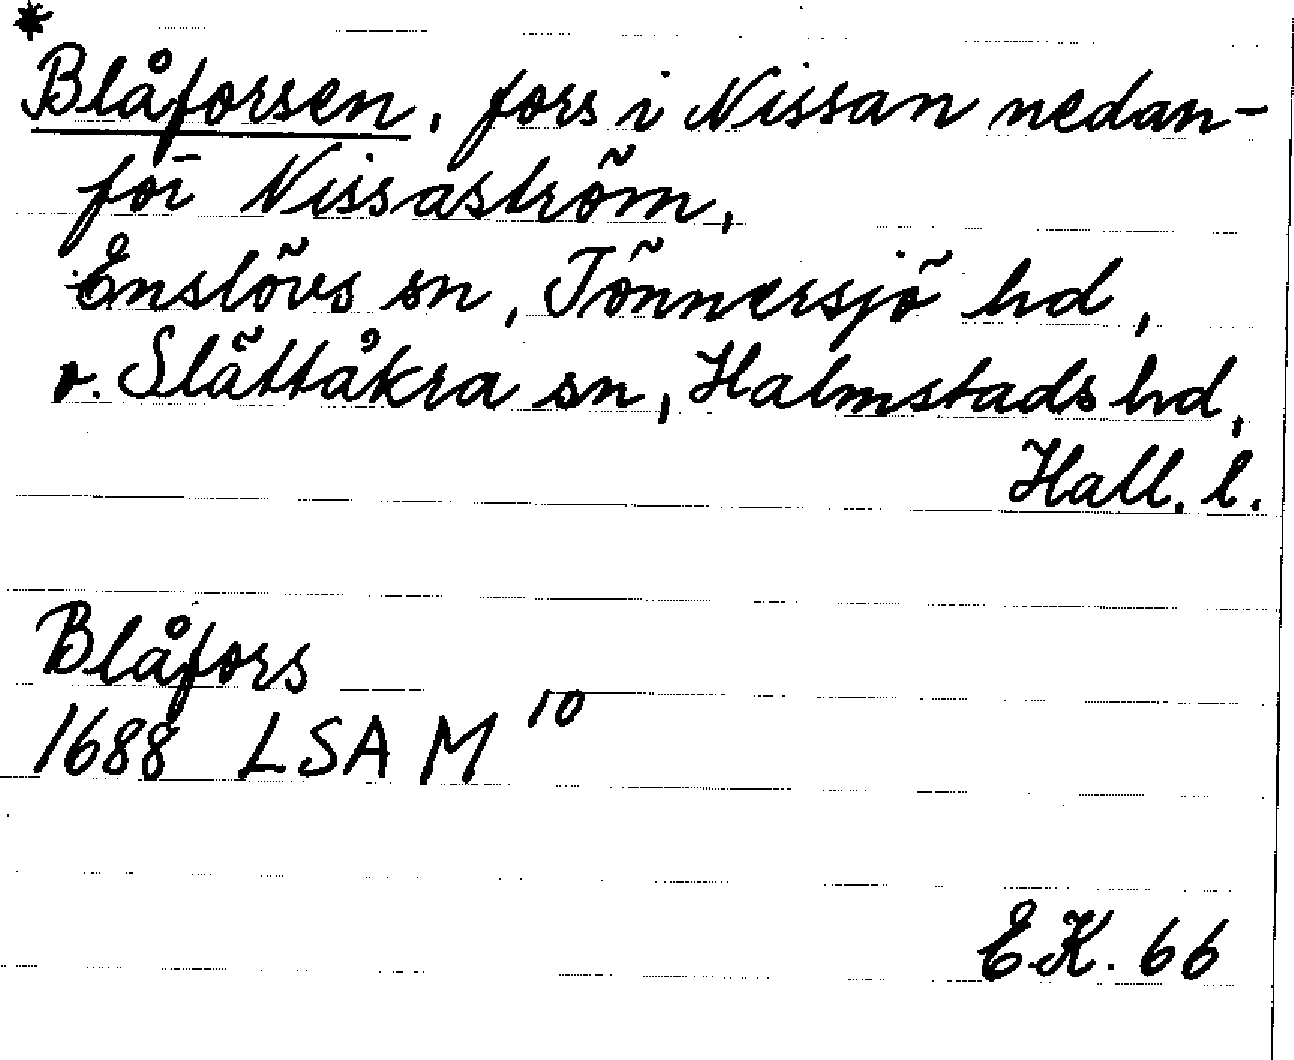 *
Blåforsen, fors i Nissan nedan-
för Nissaström,
Enslövs sn, Tönnersjö hd,
o. Slättåkra sn, Halmstads hd,
Hall. l.
Blåfors
1688 LSA M 10
E.K. 66